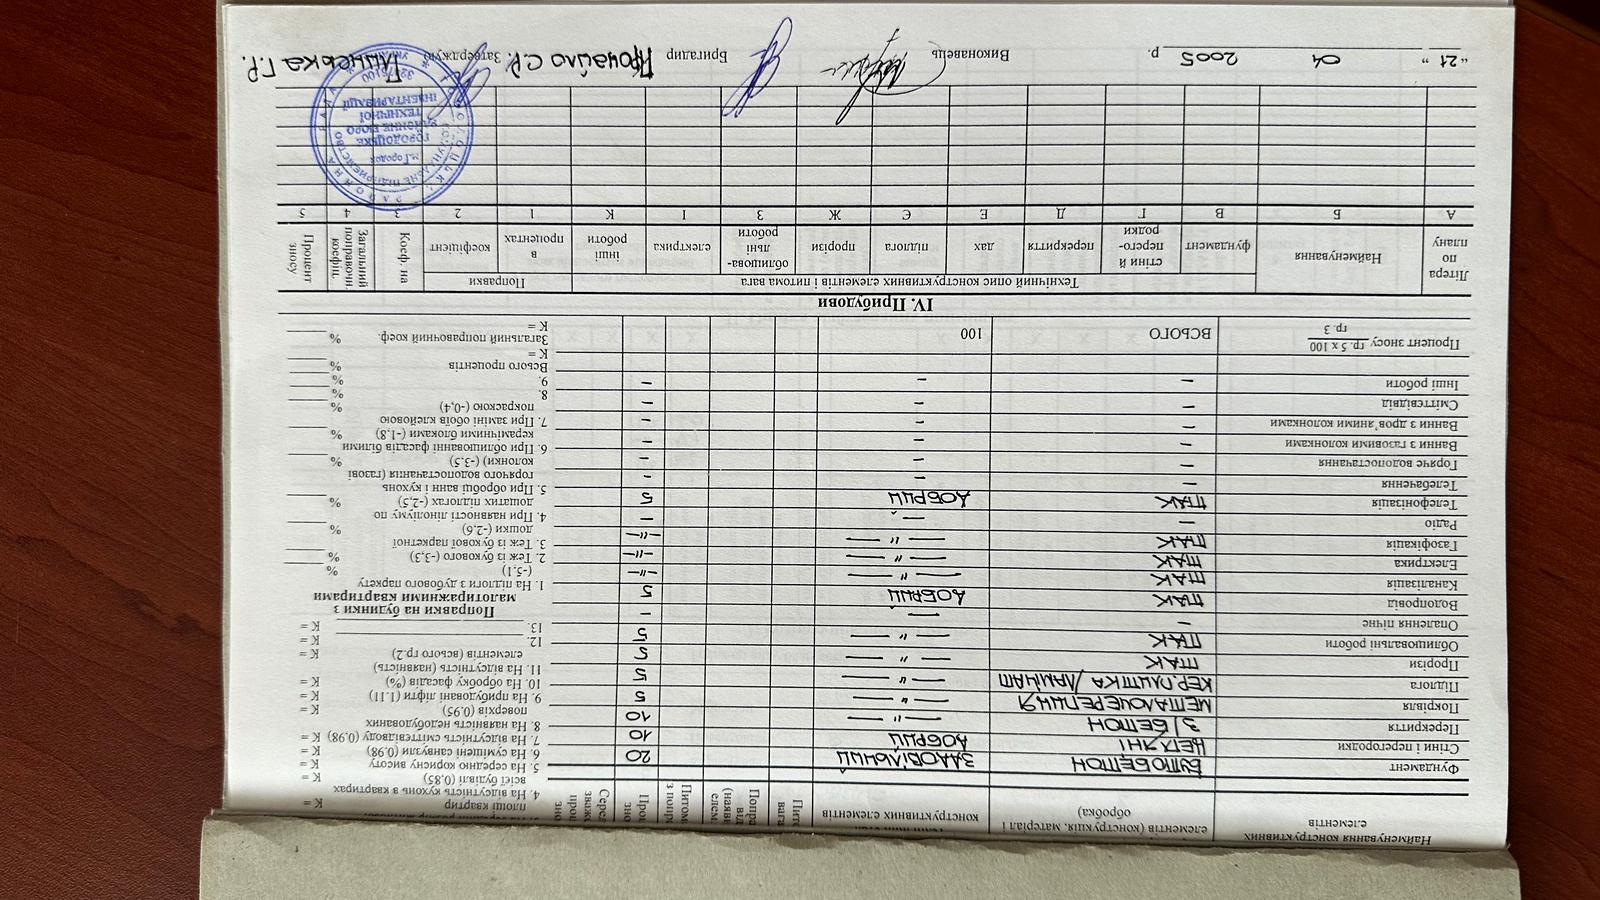 Найменування конструктивних елементів
елементів (конструкція, матеріал і обробка)
конструктивних елементів
Фундамент БУТОБЕТОН ЗАДОВІЛЬНИЙ 20
Стіни і перегородки ЦЕГЛЯНІ ДОБРИЙ 10
Перекриття З/БЕТОН — " — 10
Покрівля МЕТАЛОЧЕРЕПИЦЯ — " — 5
Підлога КЕР. ПЛИТКА / ЛАМІНАТ — " — 5
Прорізи ТАК — " — 5
Облицювальні роботи ТАК — " — 5
Опалення пічне – — " — –
Водопровід ТАК ДОБРИЙ 5
Каналізація ТАК — " — –"–
Електрика ТАК — " — –"–
Газофікація ТАК — " — –"–
Радіо – – –
Телефонізація ТАК ДОБРИЙ 5
Телебачення – – –
Горяче водопостачання – – –
Ванни з газовими колонками – – –
Ванни з дров'яними колонками – – –
Сміттєвідвід – – –
Інші роботи – – –
Процент зносу гр. 5 х 100 / гр. 3 ВСЬОГО 100
площі квартир К =
4. На відсутність кухонь в квартирах
всієї будівлі (0,85) К =
5. На середню корисну висоту К =
6. На суміщені санвузли (0,98) К =
7. На відсутність сміттєвідводу (0,98) К =
8. На наявність недобудованих
поверхів (0,95) К =
9. На прибудовані ліфти (1.11) К =
10. На обробку фасадів (%) К =
11. На відсутність (наявність)
елементів (всього гр.2) К =
12. К =
13. К =
Поправки на будинки з
малогиражними квартирами
1. На підлоги з дубового паркету
(-5,1) %
2. Теж із букового (-3,3) %
3. Теж із букової паркетної
дошки (-2,6) %
4. При наявності лінолiуму по
дощатих підлогах (-2,5) %
5. При обробці ванн і кухонь
горячого водопостачання (газові
колонки) (-3,5) %
6. При облицюванні фасадів білими
керамічними блоками (-1,8) %
7. При заміні обоїв клейовою
покраскою (-0,4) %
8. %
9. %
Всього процентів %
К =
Загальний поправочний коеф. %
К =
IV. Прибудови
Літера по плану
Найменування
Технічний опис конструктивних елементів і питома вага
фундамент
стіни й перегородки
перекриття
дах
підлога
прорізи
облицювальні роботи
електрика
інші роботи
Поправки
в процентах
коефіцієнт
Коеф. на
Загальний поправочн. коефіц.
Процент зносу
А Б В Г Д Е Є Ж З І К 1 2 3 4 5
"21" 04 2005 р. Виконавець Бригадир Почайло С.Р. Затверджую Глинська Г.Р.
УКРАЇНА
КОМУНАЛЬНЕ ПІДПРИЄМСТВО
м.Городок
ГОРОДОЦЬКЕ
РАЙОННЕ БЮРО
ТЕХНІЧНОЇ
ІНВЕНТАРИЗАЦІЇ